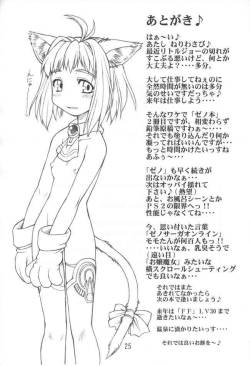 あとがき♪
はぁ～い♪
あたし ねりわさび♪
最近リトルジョーの切れが
すこぶる悪いけど、何とか
大丈夫よ？‥‥多分。
大して仕事してねぇのに
全然時間が無いのは多分
気のせいですだっちゃ♪
来年は仕事しよう‥‥
そんなワケで「ゼノ本」
２冊目ですが、相変わらず
鉛筆原稿ですわぁ～‥‥
それでも塗り込んだり何か
ってればいいんですが、
もっと時間かけたいすね
あふぅ～‥‥
「ゼノ」も早く続きが
出ないかなぁ‥‥
次はオッパイ揺れて
下さい♪（熱望）
あと、お風呂シーンとか
ＰＳ２の限界へっ！！
性能じゃなくてね‥‥
今、思い付いた言葉
「ゼノサーガオンライン」
モモたんが何百人もっ！！
いいなぁ、乳臭そうで
（遠い目）
「お嬢魔女」みたいな
横スクロールシューティング
でも良いなぁ‥‥
それではまた
あきれてなかったら
次の本で逢いましょう♪
来年は「ＦＦ」LV30まで
逝きたいなぁ‥‥
温泉に浸かりたいっす‥‥
それでは良いお餅を～♪
25